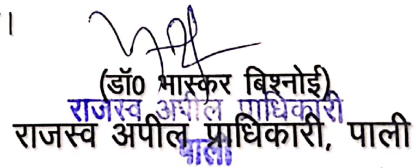 ।
(डॉ0 भास्कर बिश्नोई)
राजस्व अपील प्राधिकारी
राजस्व अपील प्राधिकारी, पाली
पाली